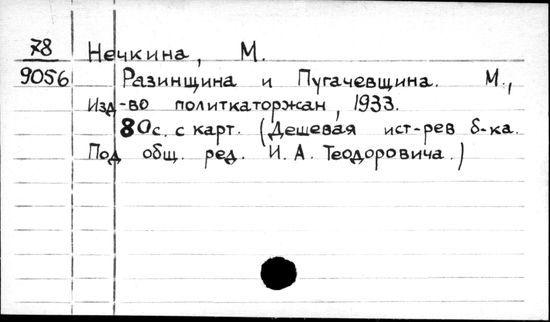 78 Нечкина, М.
9056 Разинщина и Пугачевщина. М.,
Изд-во политкаторжан, 1933.
80с. с карт. (Дешевая ист-рев б-ка.
Под общ. ред. И. А. Теодоровича.)